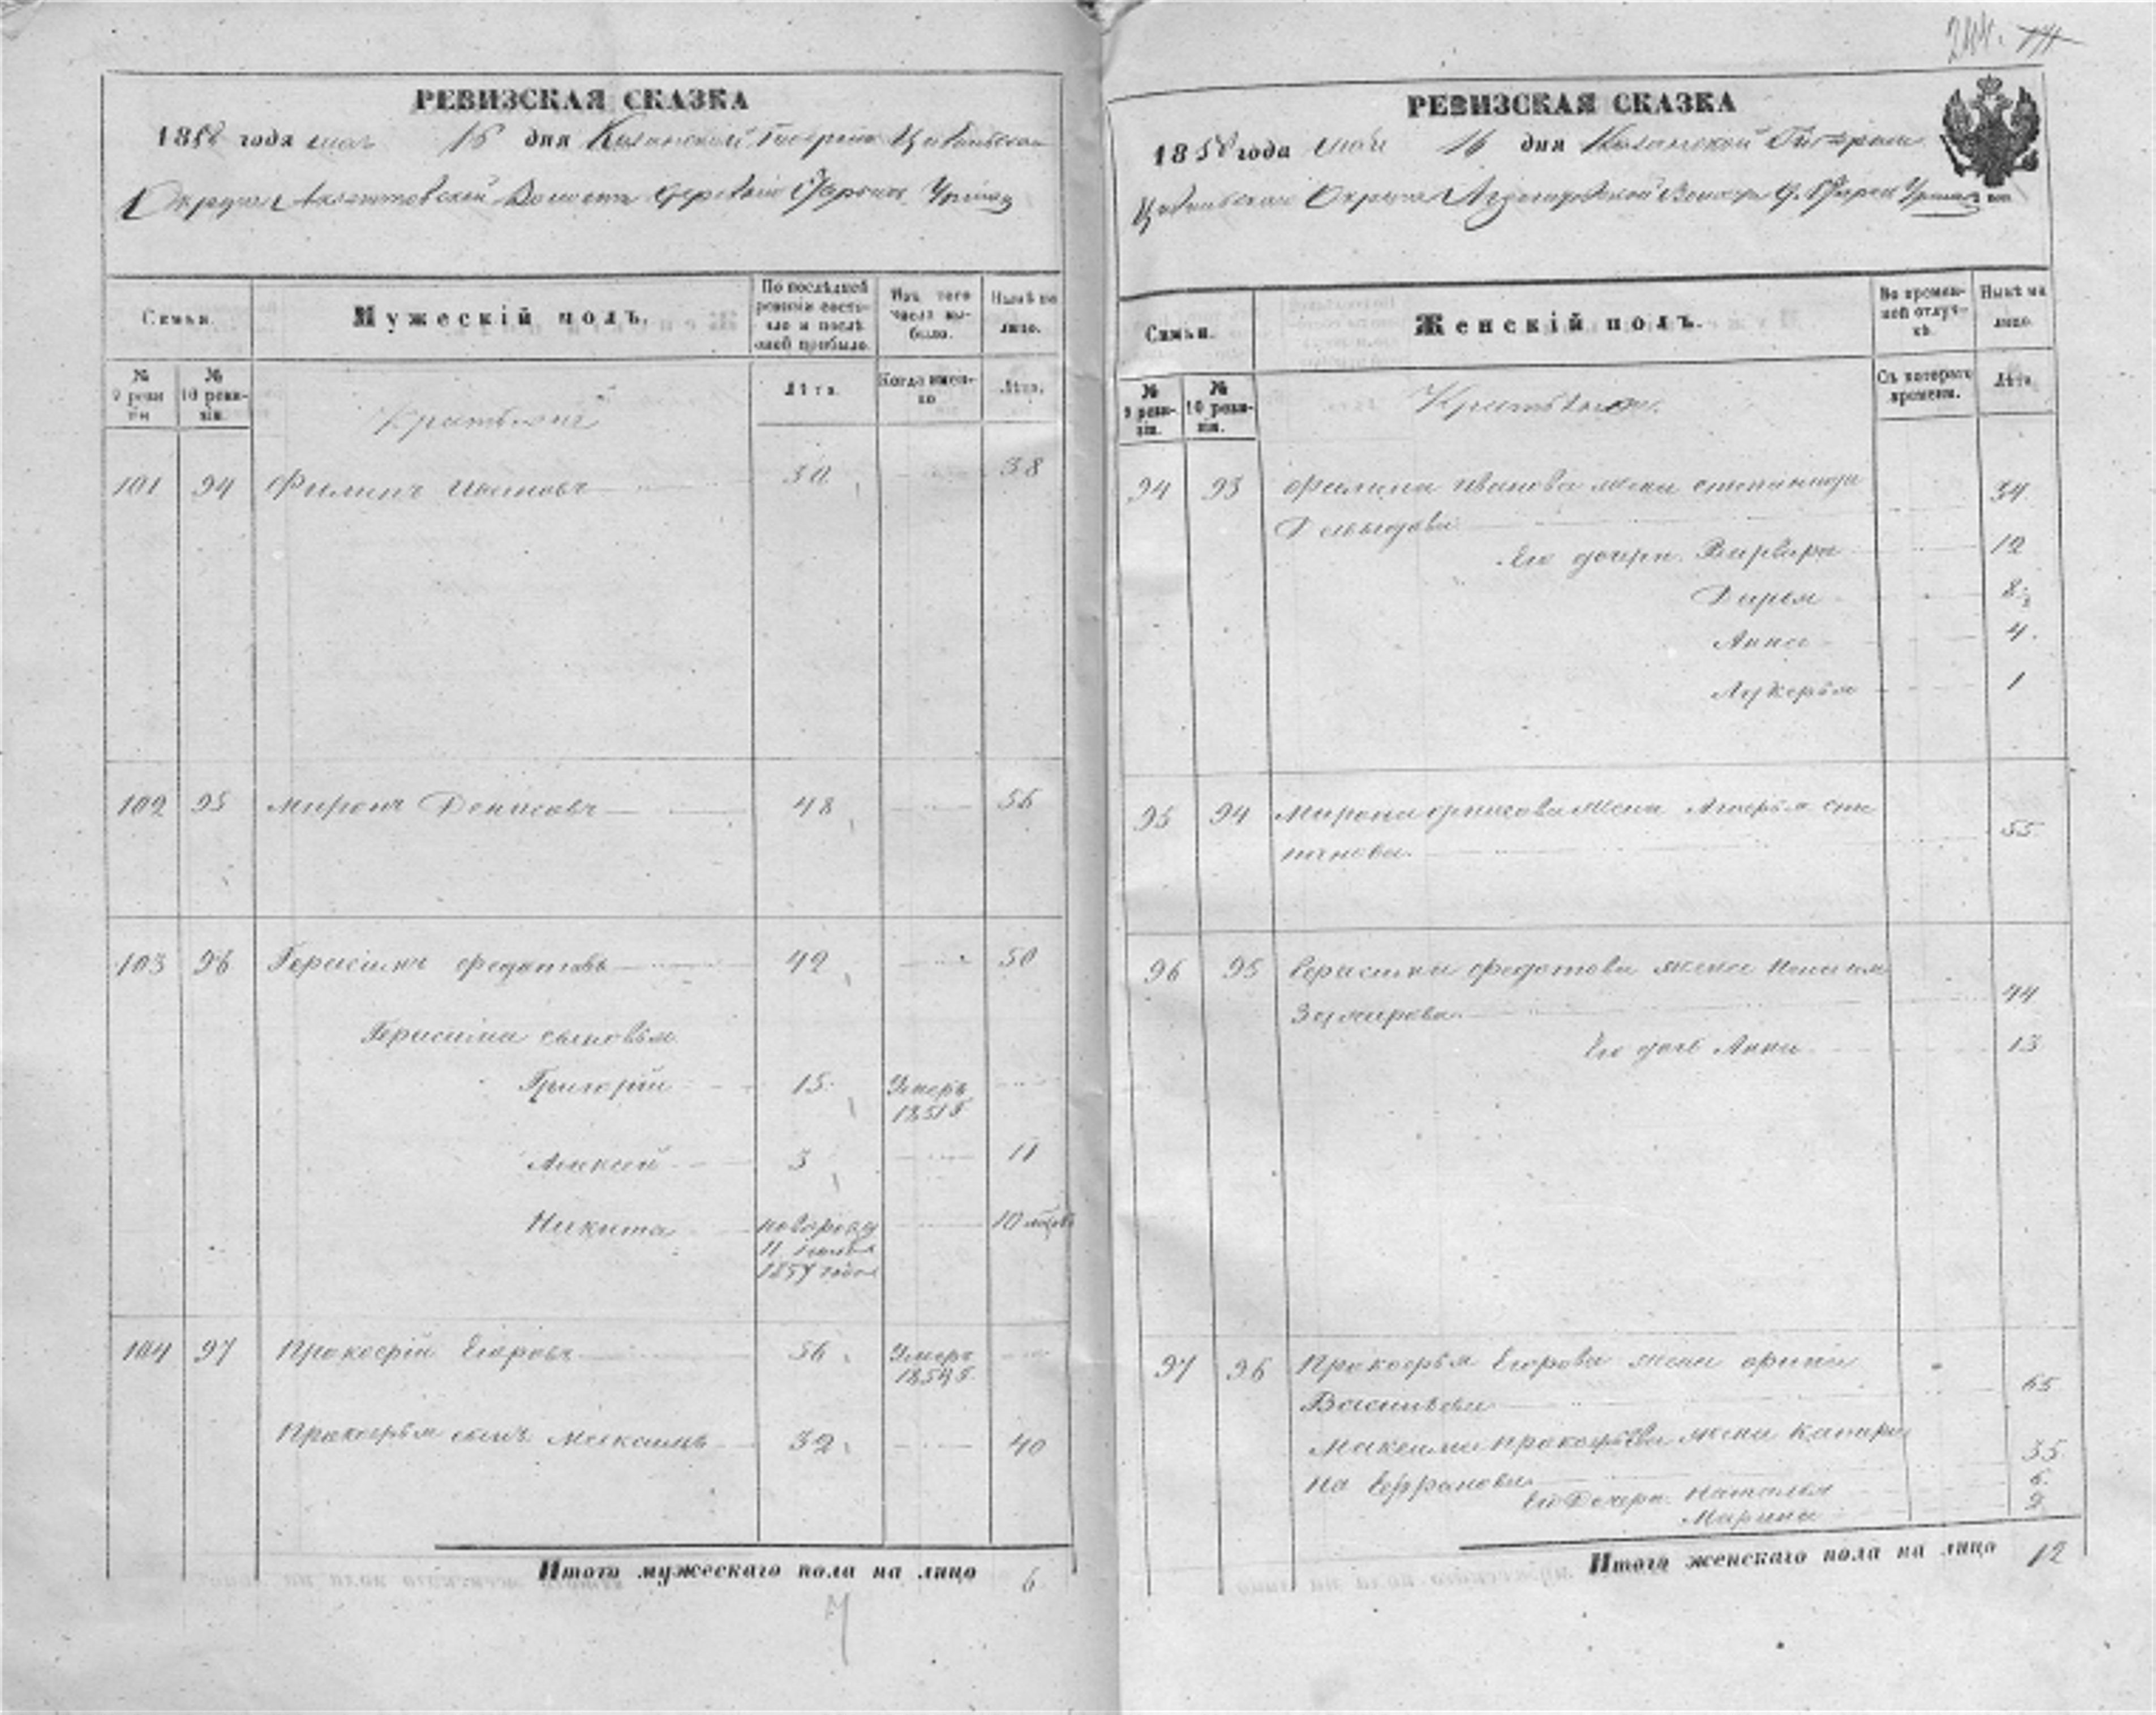 РЕВИЗСКАЯ СКАЗКА
1858 года мая 16 дня Казанской Губерніи Цивильскаго
Округа Волости деревни Урмаш
Семьи.
Мужескій полъ.
По послѣдней ревизіи состояло и послѣ оной прибыло.
Изъ того числа выбыло.
Нынѣ на лицо.
№ 9 ревизіи
№ 10 ревизіи.
Крестьяне
Лѣта.
Когда именно
Лѣта.
101 94 Филипъ Ивановъ 30 38
102 95 Миронъ Денисовъ 48 56
103 96 Герасимъ Федотовъ 42 50
Герасима сыновья
Григорій 15 Умеръ
1851 г.
Алексей 3 11
Никита новорожд 10 мѣсяц
11 1857 года
104 97 Прокофій Егоровъ 56 Умеръ
1854 г.
Прокофья сынъ Максимъ 32 40
Итого мужескаго пола на лицо 6
7
РЕВИЗСКАЯ СКАЗКА
1858 года мая 16 дня Казанской Губерніи
Цивильскаго Округа Волости
Семьи.
Женскій полъ.
Во временной отлучкѣ.
Нынѣ на лицо.
№ 9 ревизіи.
№ 10 ревизіи.
Крестьяне.
Съ котораго времени.
Лѣта.
94 93 Филипа Иванова жена Степанида 34
Давыдова
Его дочери Варвара 12
Дарья 8
Анна 4
Лукерья 1
95 94 Мирона Денисова жена Сте
панова 55
96 95 Герасима Федотова жена
44
Его дочь Анна 13
97 96 Прокофья Егорова жена Орина
Васильева 65
Максима Прокофьева жена Катери
на 35
Его Дочери Наталья 6
Марина 2
Итого женскаго пола на лицо 12